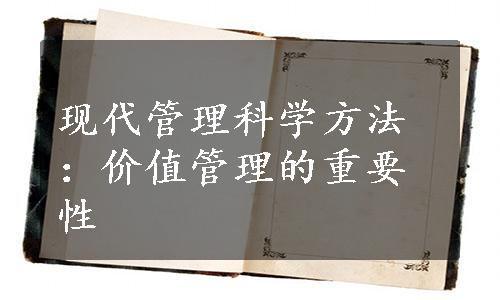 现代管理科学方法
：价值管理的重要
性